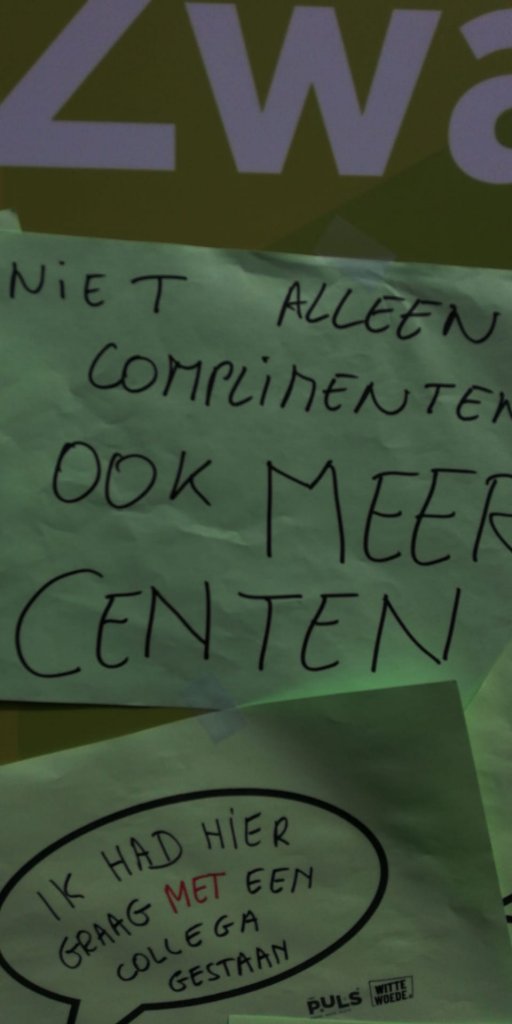 Zwa
NiET ALLEEN
COMPLiMENTEN
OOK MEER
CENTEN
IK HAD HiER
GRAAG MET EEN
COLLEGA
GESTAAN
PULS WITTE
WOEDE.